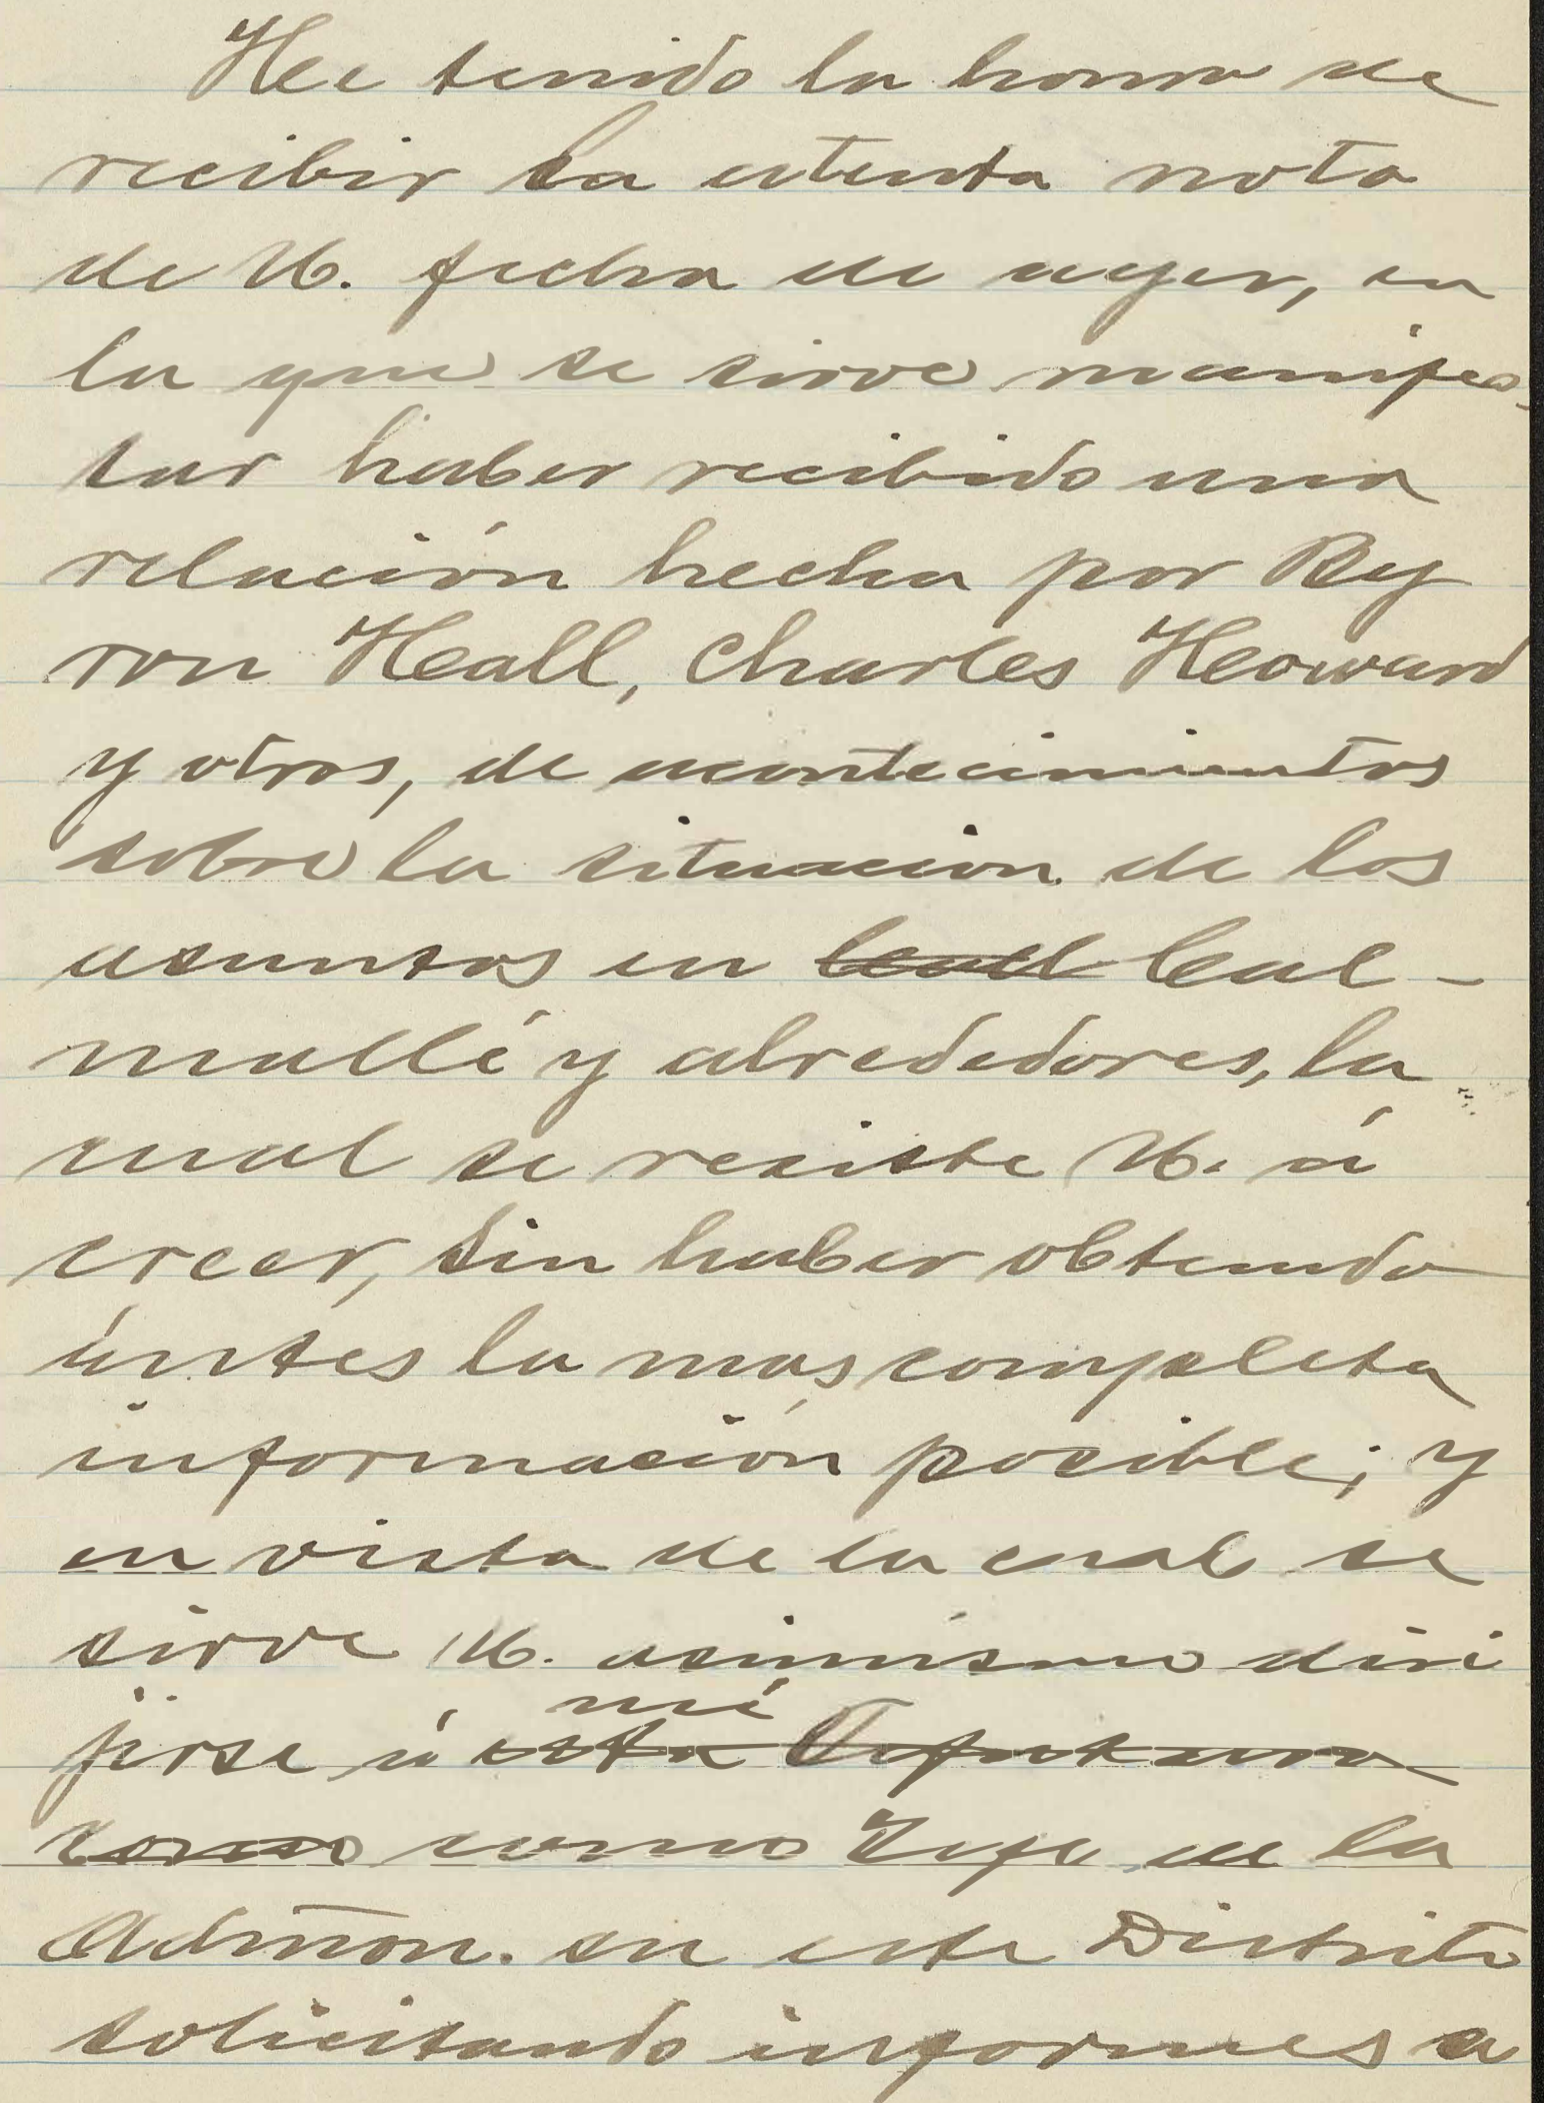 He tenido la honra de
recibir la atenta nota
de U. fecha de ayer, en
la que se sirve manifes-
tar haber recibido una
relación hecha por By
ron Hall, Charles Howard
y otros, de acontecimientos
sobre la situacion de los
asuntos en Cal-
mallí y alrededores, la
cual se resiste U. á
creer, sin haber obtenido
ántes la mas completa
información posible; y
en vista de la cual se
sirve U. asimismo diri
jirse á mí
como como Jefe de la
Admon. en este Distrito
solicitando informes a